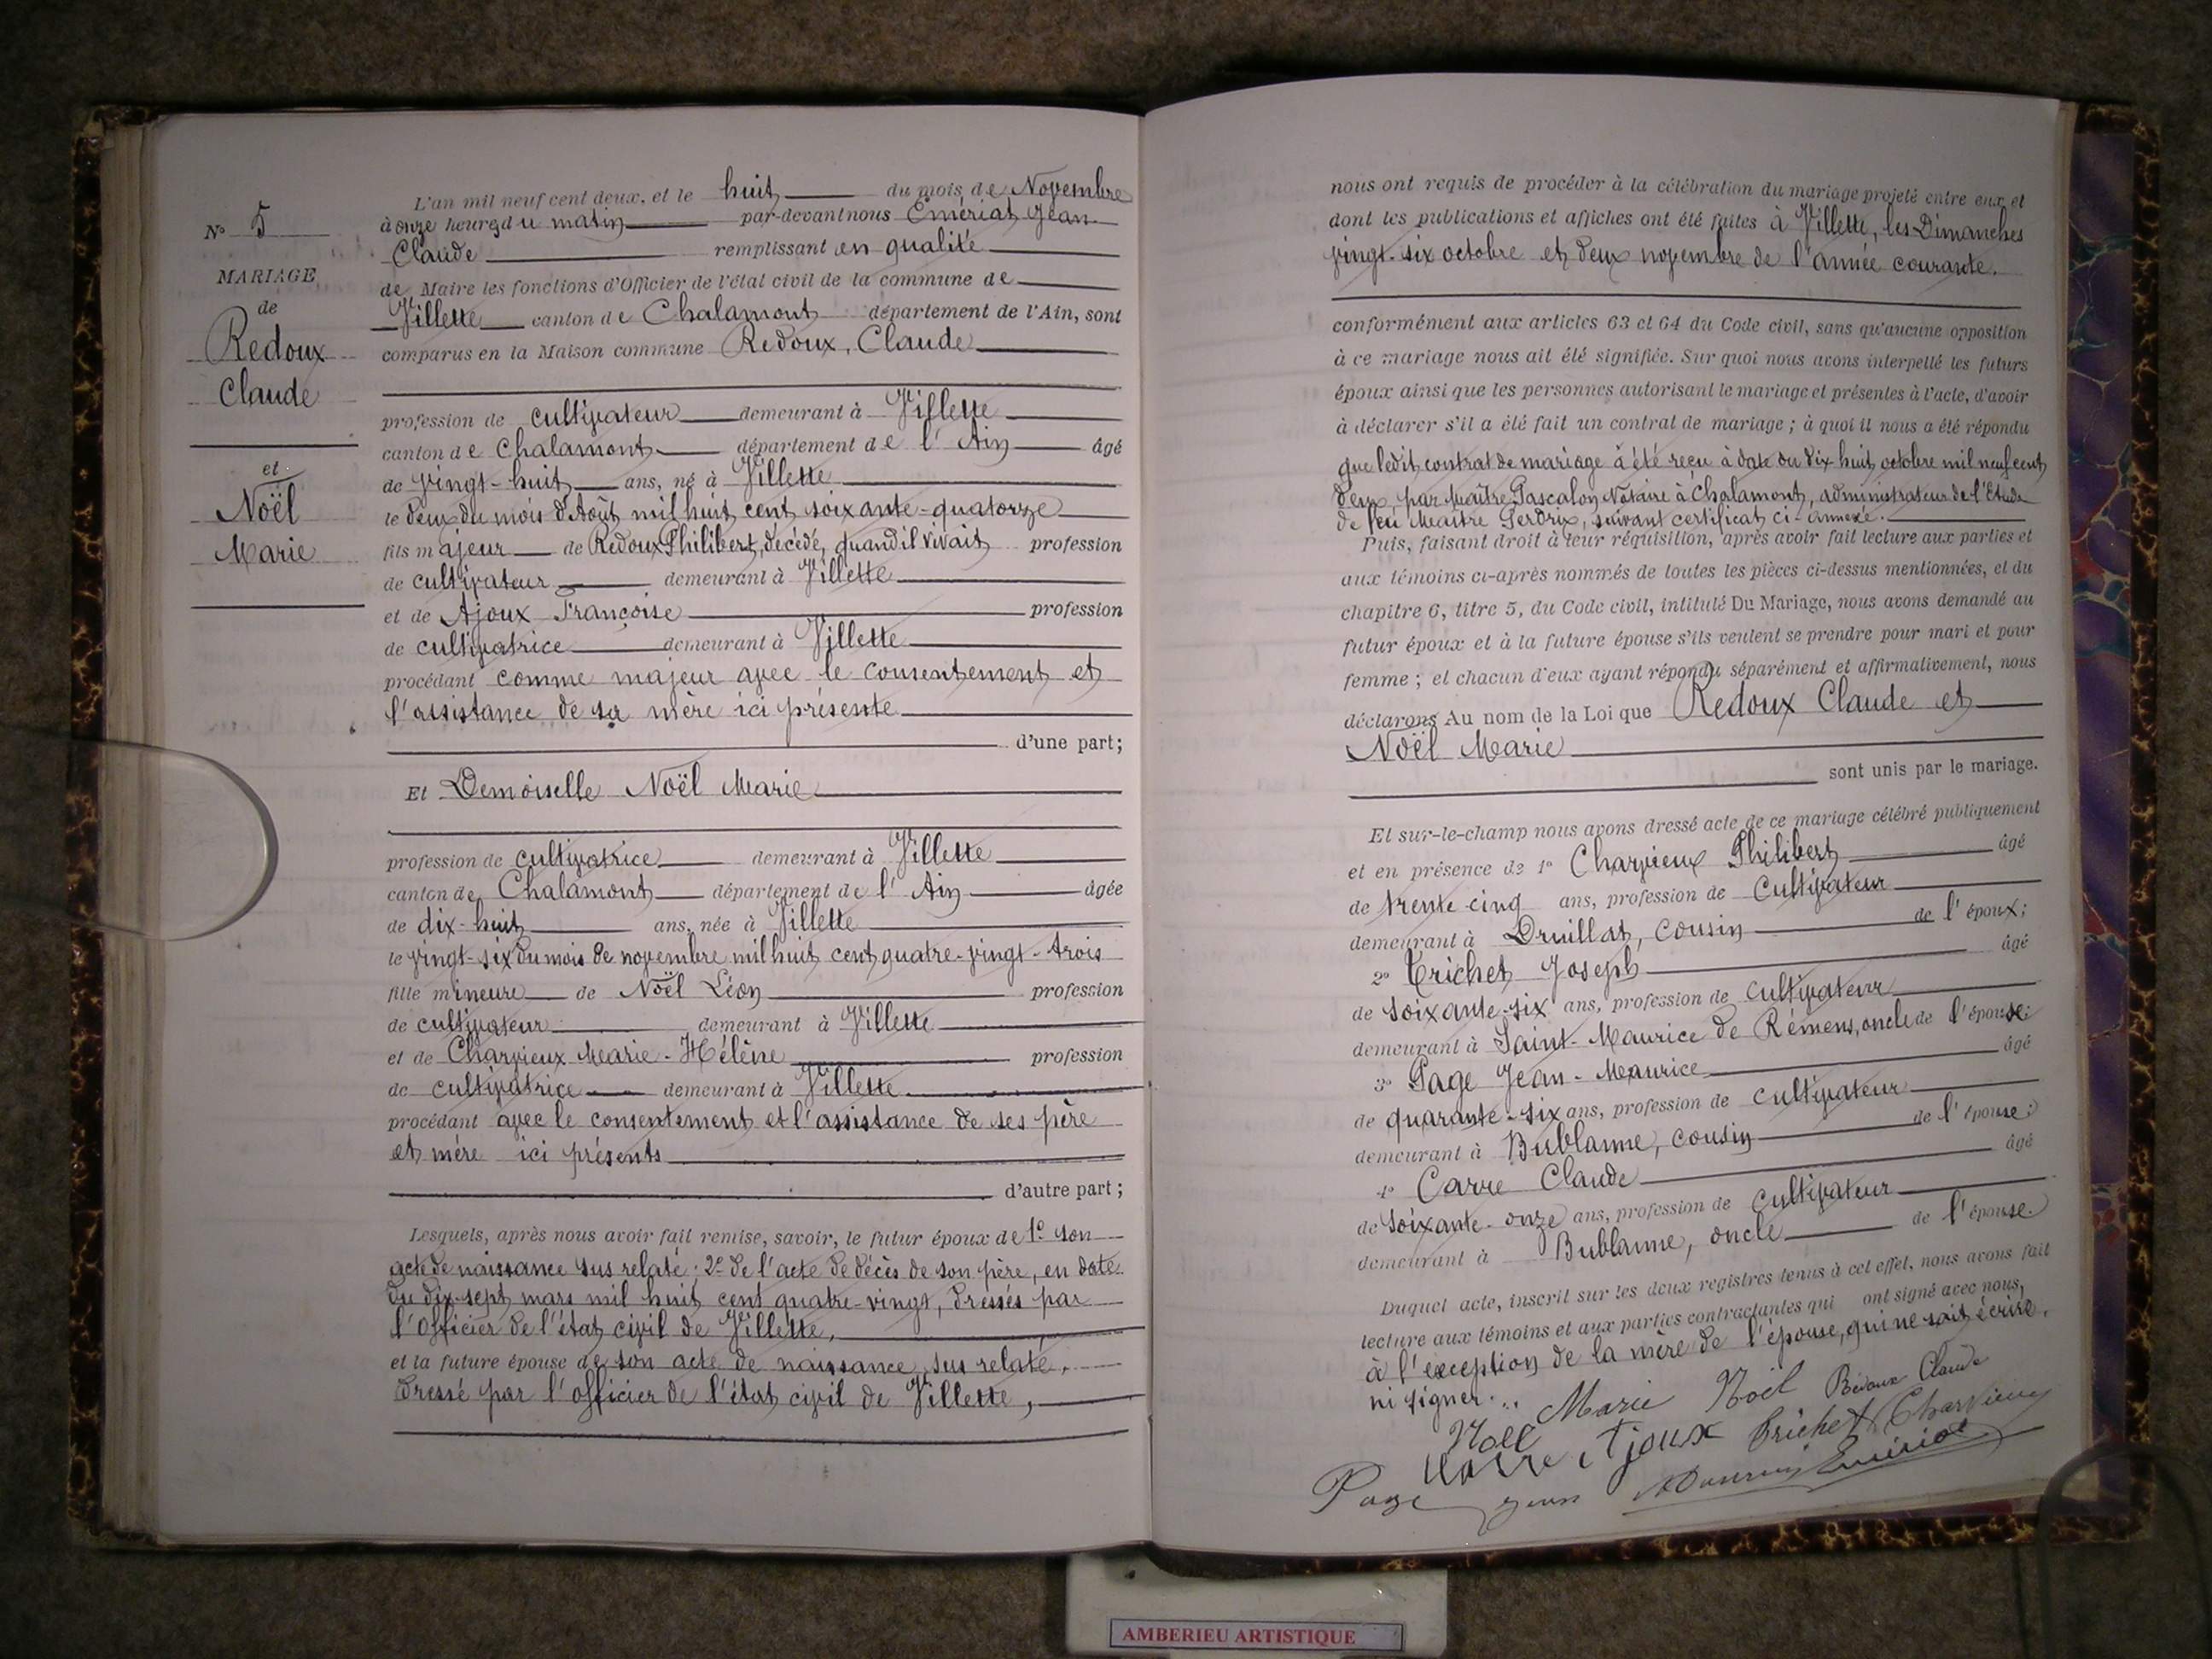 N° 5
MARIAGE
de
Redoux
Claude
et
Noël
Marie
L'an mil neuf cent deux, et le huit du mois de Novembre
à onze heures du matin par-devant nous Emériat Jean
Claude remplissant en qualité
de Maire les fonctions d'Officier de l'état civil de la commune de
Villette canton de Chalamont département de l'Ain, sont
comparus en la Maison commune Redoux, Claude
profession de cultivateur demeurant à Villette
canton de Chalamont département de l'Ain âgé
de vingt-huit ans, né à Villette
le deux du mois d'Août mil huit cent soixante-quatorze
fils majeur de Redoux Philibert, décédé, quand il vivait profession
de cultivateur demeurant à Villette
et de Ajoux Françoise profession
de cultivatrice demeurant à Villette
procédant comme majeur avec le consentement et
l'assistance de sa mère ici présente
d'une part;
Et Demoiselle Noël Marie
profession de cultivatrice demeurant à Villette
canton de Chalamont département de l'Ain âgée
de dix-huit ans, née à Villette
le vingt-six du mois de novembre mil huit cent quatre-vingt-trois
fille mineure de Noël Léon profession
de cultivateur demeurant à Villette
et de Charvieux Marie-Hélène profession
de cultivatrice demeurant à Villette
procédant avec le consentement et l'assistance de ses père
et mère ici présents
d'autre part;
Lesquels, après nous avoir fait remise, savoir, le futur époux de 1° son
acte de naissance sus relaté; 2° de l'acte de décès de son père, en date
du dix-sept mars mil huit cent quatre-vingt, dressés par
l'Officier de l'état civil de Villette,
et la future épouse de son acte de naissance sus relaté,
dressé par l'officier de l'état civil de Villette,
nous ont requis de procéder à la célébration du mariage projeté entre eux et
dont les publications et affiches ont été faites à Villette, les Dimanches
vingt-six octobre et deux novembre de l'année courante.
conformément aux articles 63 et 64 du Code civil, sans qu'aucune opposition
à ce mariage nous ait été signifiée. Sur quoi nous avons interpellé les futurs
époux ainsi que les personnes autorisant le mariage et présentes à l'acte, d'avoir
à déclarer s'il a été fait un contrat de mariage; à quoi il nous a été répondu
que ledit contrat de mariage a été reçu à date du dix huit octobre mil neuf cent
deux, par Maître Pascalon Notaire à Chalamont, administrateur de l'Etude
de feu Maître Perdrix, suivant certificat ci-annexé.
Puis, faisant droit à leur réquisition, après avoir fait lecture aux parties et
aux témoins ci-après nommés de toutes les pièces ci-dessus mentionnées, et du
chapitre 6, titre 5, du Code civil, intitulé Du Mariage, nous avons demandé au
futur époux et à la future épouse s'ils veulent se prendre pour mari et pour
femme; et chacun d'eux ayant répondu séparément et affirmativement, nous
déclarons Au nom de la Loi que Redoux Claude et
Noël Marie
sont unis par le mariage.
Et sur-le-champ nous avons dressé acte de ce mariage célébré publiquement
et en présence de 1° Charvieux Philibert âgé
de trente-cinq ans, profession de Cultivateur
demeurant à Druillat, cousin de l'époux;
2° Trichet Joseph âgé
de soixante-six ans, profession de cultivateur
demeurant à Saint-Maurice de Rémens, oncle de l'épouse;
3° Page Jean-Maurice âgé
de quarante-six ans, profession de cultivateur
demeurant à Bublanne, cousin de l'épouse;
4° Carre Claude âgé
de soixante-onze ans, profession de cultivateur
demeurant à Bublanne, oncle de l'épouse.
Duquel acte, inscrit sur les deux registres tenus à cet effet, nous avons fait
lecture aux témoins et aux parties contractantes qui ont signé avec nous,
à l'exception de la mère de l'épouse, qui ne sait écrire,
ni signer.
Marie Noël Redoux Claude
Noël Ajoux Trichet Charvieux
Page Jean Emériat
AMBERIEU ARTISTIQUE